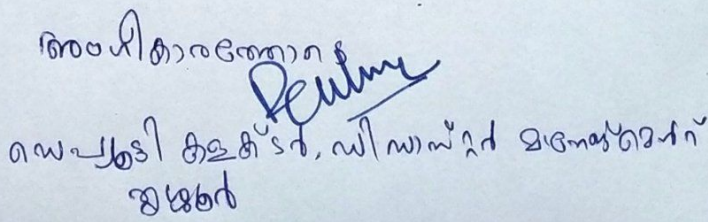 അംഗീകാരത്തോടെ
ഡെപ്യൂട്ടി കളക്ടർ, ഡിസാസ്റ്റർ മാനേജ്മെൻ്റ്